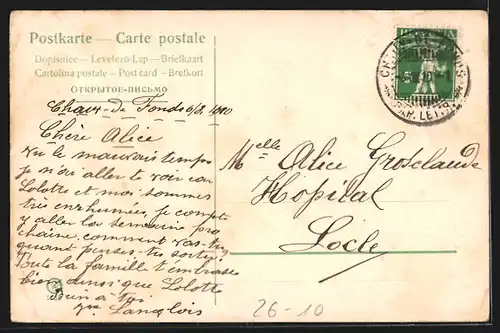 Postkarte – Carte postale
Dopisnice – Levelező Lap – Briefkaart
Cartolina postale – Post card – Brefkort
ОТКРЫТОЕ-ПИСЬМО
Chaux-de Fonds 6/8 1910
Chère Alice
vu le mauvais temps
je n'ai aller te voir car
Lolotte et moi sommes
très enrhumées, je compte
y aller la semaine pro
chaine, comment vas-tu,
quand penses-tu sortir?
Toute la famille t'embrasse
bien ainsi que Lolotte
Langlois
Melle Alice Grosclaude
Hôpital
Locle
26-10